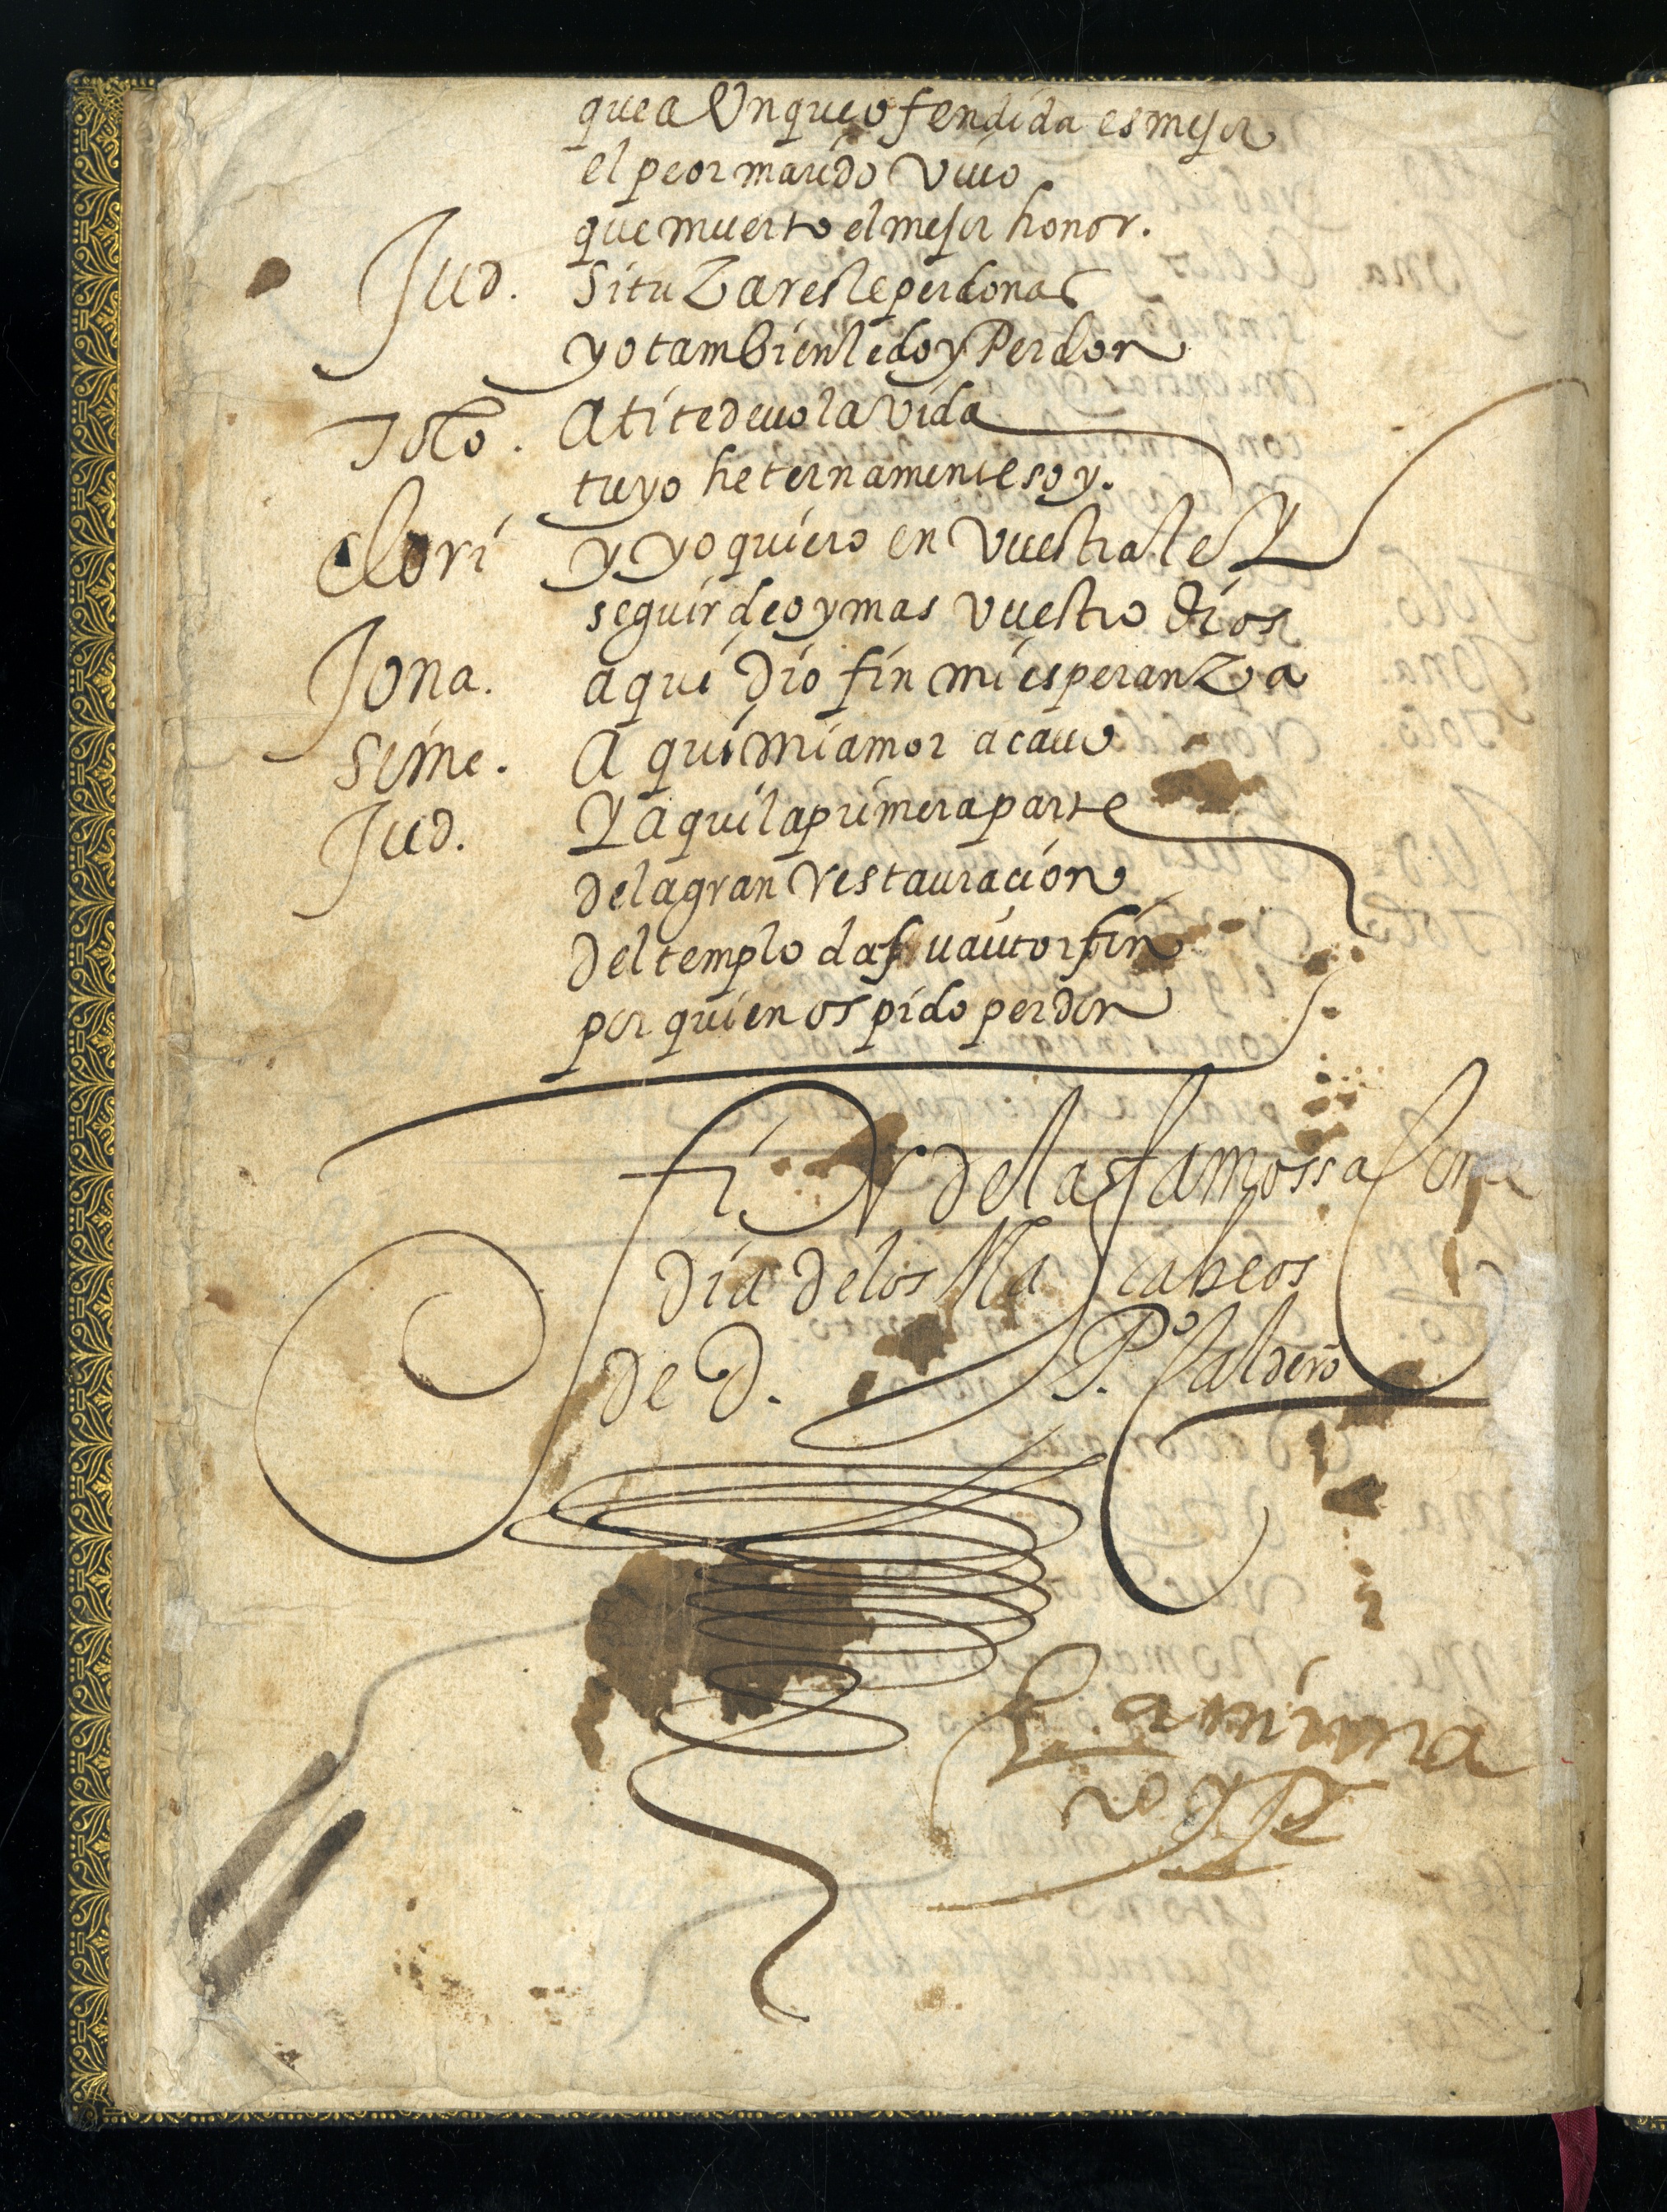 que aunque ofendida es mejor
el peor marido vivo
que muerto el mejor honor.
Jud. Si tu Zares le perdonas
yo tambien le doy Perdon
Tolo. A ti te devo la vida
tuyo heternamente soy.
Clori y yo quiero en vuestra leY
seguir de oy mas vuestro Dios
Jona. aqui Dio fin mi esperanZa
Sime. A qui mi amor acavo
Jud. Y aqui la primera parte
de la gran restauracion
Del templo da su autor fin
por quien os pido perdon
fiN de la famossa Come
dia de los Macabeos
de D. P.º Caldero